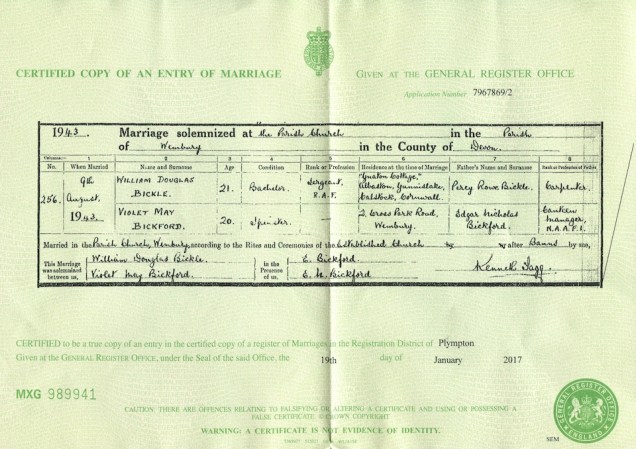 CERTIFIED COPY OF AN ENTRY OF MARRIAGE
GIVEN AT THE GENERAL REGISTER OFFICE
Application Number 7967869/2
1943. Marriage solemnized at the Parish Church in the Parish
of Wembury in the County of Devon.
1 2 3 4 5 6 7 8
No. When Married Name and Surname Age Condition Rank or Profession Residence at the time of Marriage Father's Name and Surname Rank or Profession of Father
256. 9th August, 1943.
WILLIAM DOUGLAS BICKLE. 21. Bachelor. Sergeant, R.A.F. Cottage," Albaston, Gunnislake, Calstock, Cornwall. Percy Rowe Bickle. Carpenter.
VIOLET MAY BICKFORD. 20. Spinster. — 2, Cross Park Road, Wembury. Edgar Nicholas Bickford. Canteen manager, N.A.A.F.I.
Married in the Parish Church, Wembury, according to the Rites and Ceremonies of the Established Church by after Banns by me,
This Marriage was solemnized between us,
William Douglas Bickle.
Violet May Bickford
in the Presence of us,
E. Bickford.
E. M. Bickford
Kenneth Tagg.
CERTIFIED to be a true copy of an entry in the certified copy of a register of Marriages in the Registration District of Plympton
Given at the GENERAL REGISTER OFFICE, under the Seal of the said Office, the 19th day of January 2017
MXG 989941
CAUTION: THERE ARE OFFENCES RELATING TO FALSIFYING OR ALTERING A CERTIFICATE AND USING OR POSSESSING A
FALSE CERTIFICATE © CROWN COPYRIGHT
WARNING: A CERTIFICATE IS NOT EVIDENCE OF IDENTITY.
GENERAL REGISTER OFFICE
ENGLAND